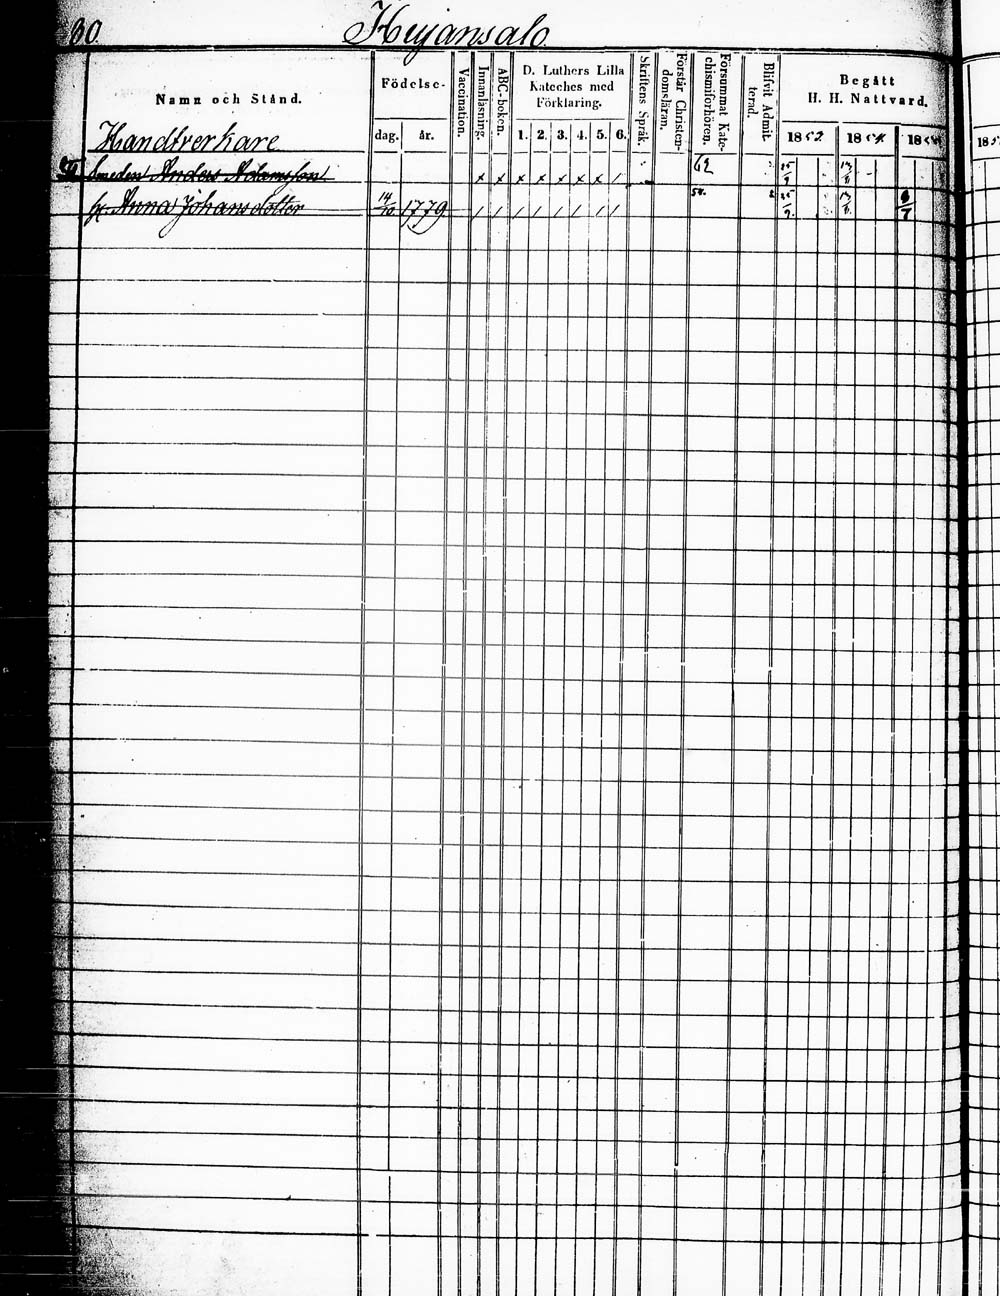 30. Hujansalo
Namn och Stånd.
Födelse-
dag. år.
Vaccination.
Innanläsning.
ABC-boken.
D. Luthers Lilla
Kateches med
Förklaring.
1. 2. 3. 4. 5. 6.
Skriftens Språk.
Förstår Christen-
domsläran.
Försummat Kate-
chismiförhören.
Blifvit Admit-
terad.
Begått
H. H. Nattvard.
1852. 1854. 185
Handtverkare
Smeden Anders Adamsson x x x x x x x / 62 25/9 13/6
h. Anna Johansdotter 14/10 1779 / / / / / / / / 25/9 13/6 9/7